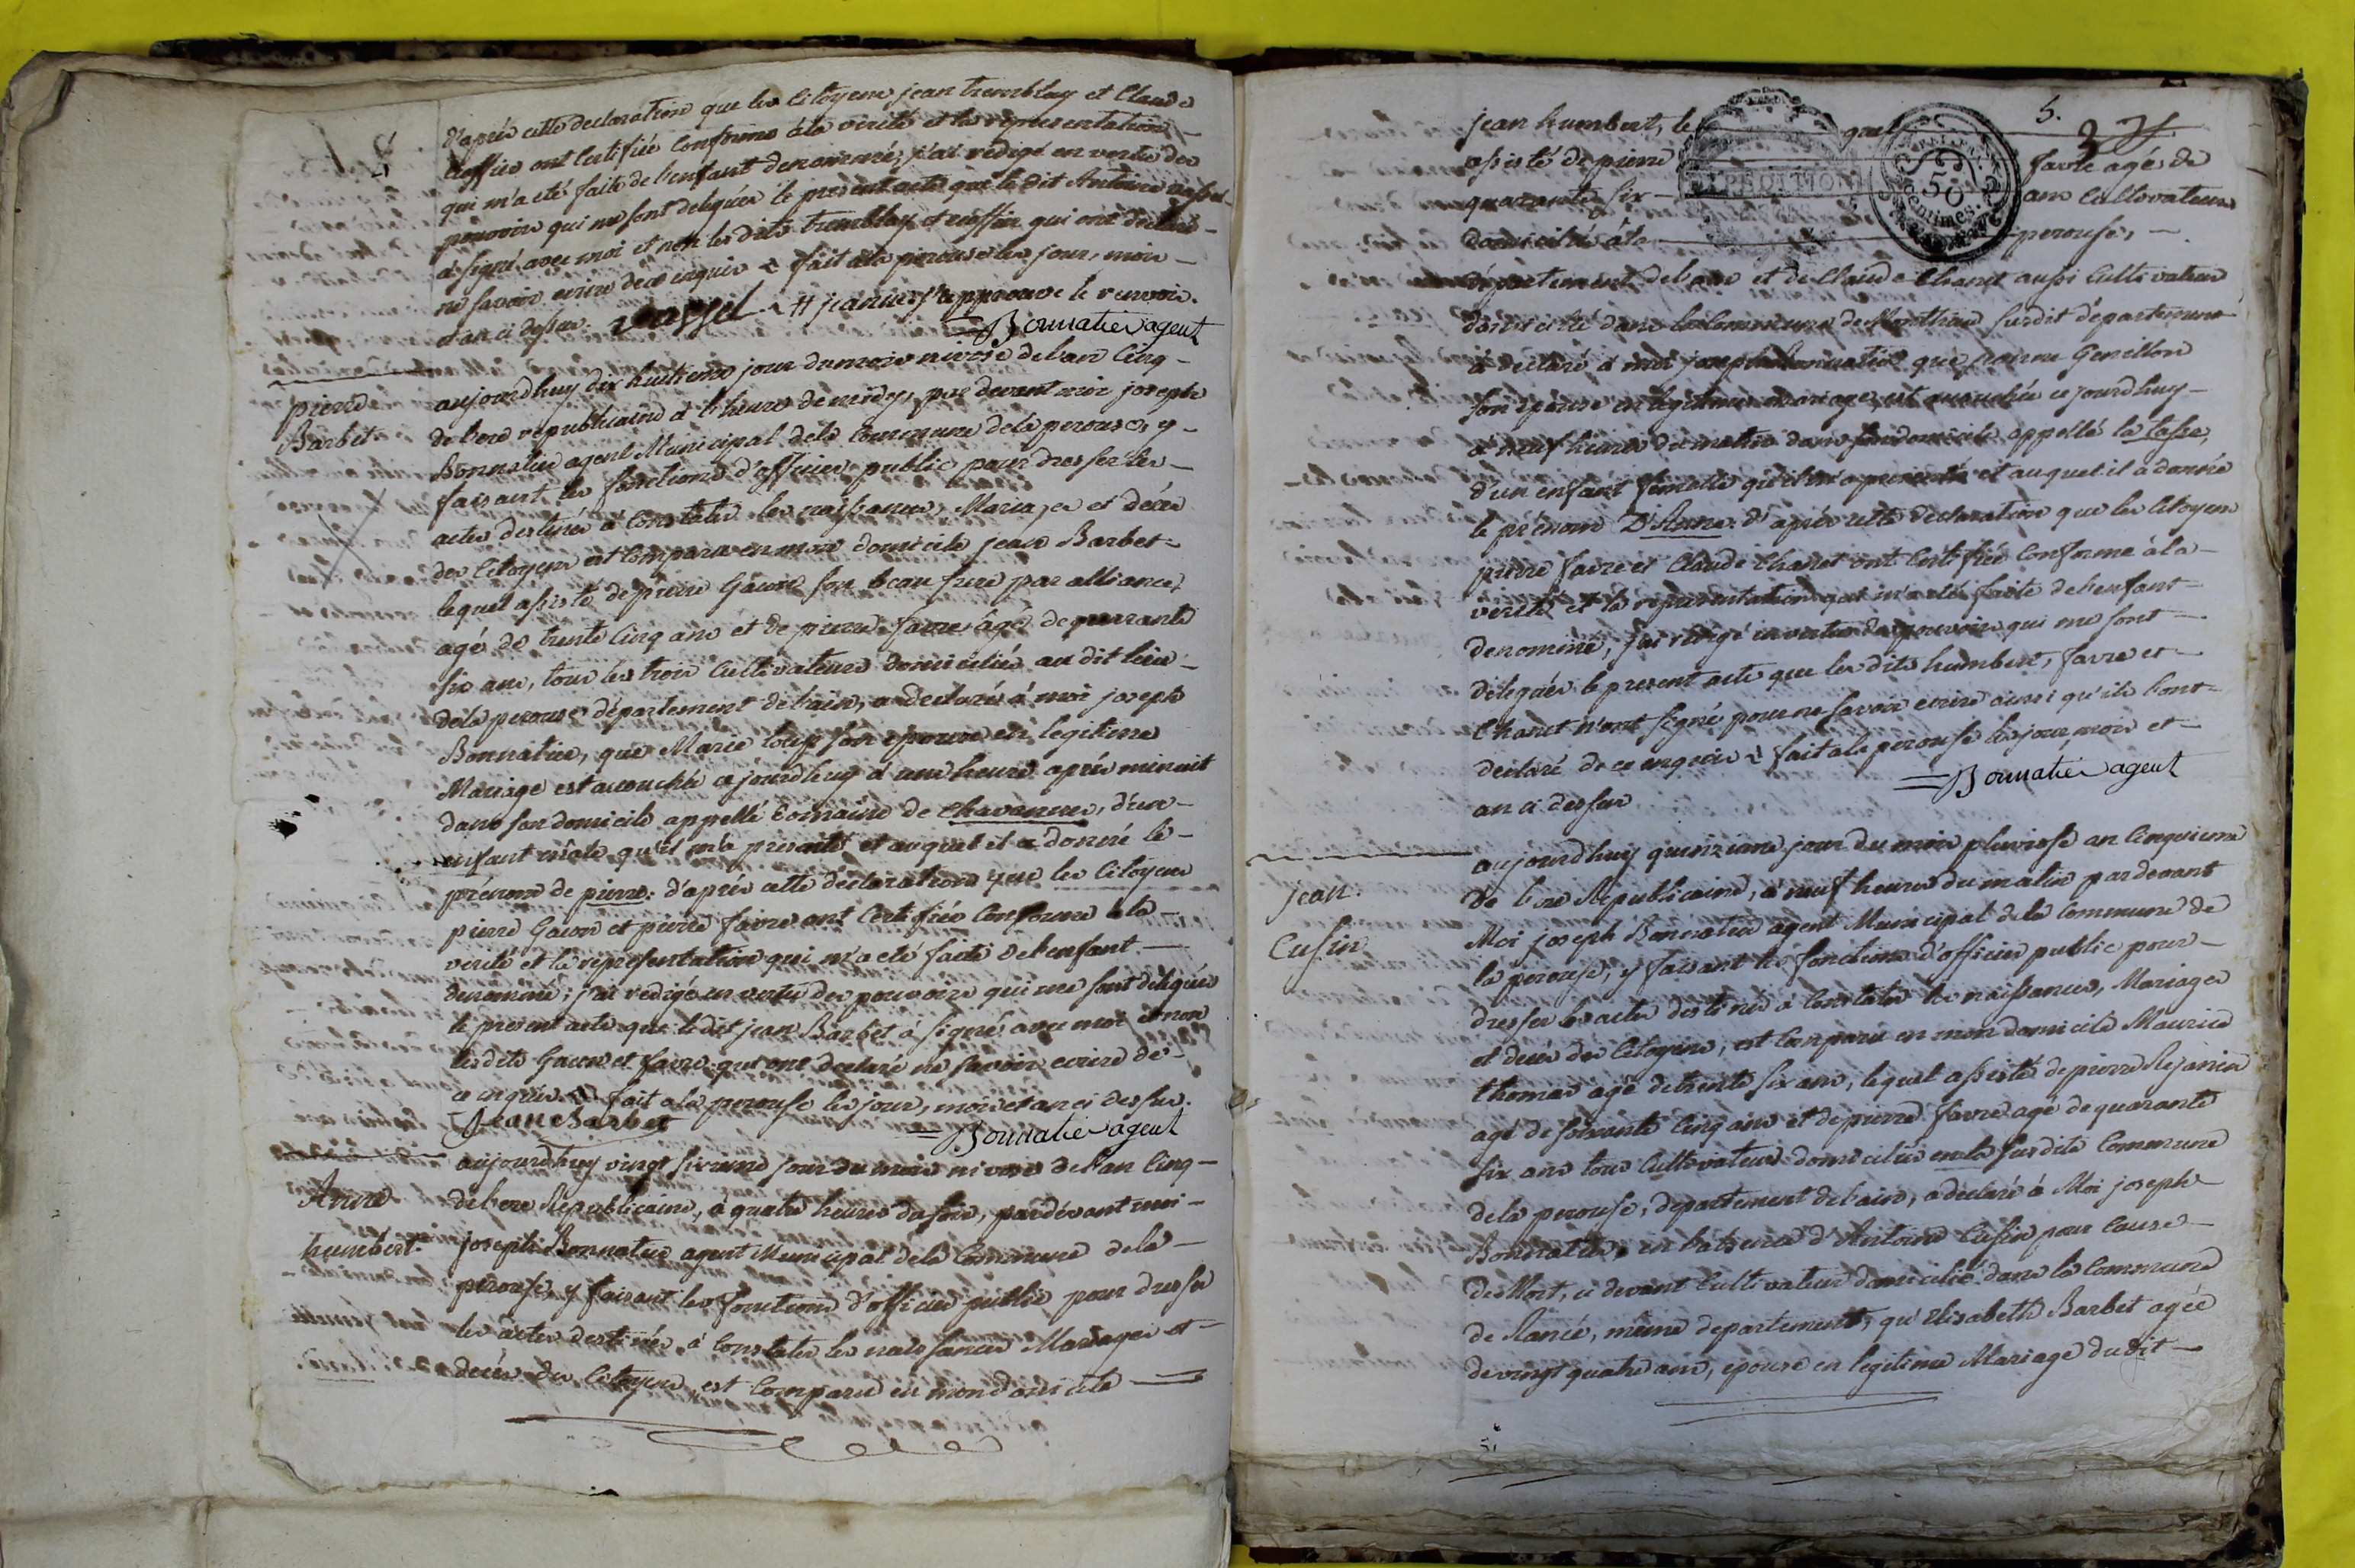 d'après cette declaration que les Citoyens jean tremblay et Claude
ruffier ont Certifiée Conforme à la vérité et la representation
qui m'a eté faite de l'enfant denommé; j'ai redigé en vertu des
pouvoirs qui me sont delegués le present acte que le dit Antoine
à signé avec moi et non les dits tremblay et ruffier qui ont declaré
ne savoir ecrire de ce enquis & fait ala perouse les jour, mois
et an ci dessus. # j'approuve le renvoir.
Bonnatier agent
pierre
Barbet
aujourdhuy dix huitieme jour du mois nivose de l'an Cinq
de l'ere republicaine à l'heure de midy, par devant moi joseph
Bonnatier agent Municipal de la Commune de la perouse, y
faisant les fonctions d'officier public, pour dresser les
actes destinés à Constater les naissances, Mariages et décés
des Citoyens est Comparu en mon domicile jean Barbet
lequel assisté de pierre Gacon son beau frere par alliance,
agé de trente Cinq ans et de pierre favre agé de quarante
six ans, tous les trois Cultivateurs domiciliés au dit lieu
de la perouse département de l'ain, a declaré à moi joseph
Bonnatier, que Marie loup son epouse en legitime
Mariage est accouchée ce jourdhuy à une heure après minuit
dans son domicile appellé domaine de Chavannes, d'un
enfant mâle qu'il m'a presenté et auquel il a donné le
prénom de pierre: d'après cette declaration que les Citoyens
pierre Gacon et pierre favre ont Certifiée Conforme à la
vérité et la representation qui m'a eté faite de l'enfant
denommé; j'ai redigé en vertu des pouvoirs qui me sont delegués
le present acte que le dit jean Barbet à signé avec moi et non
les dits Gacon et favre qui ont declaré ne savoir ecrire de
ce enquis & fait a la perouse les jour, mois et an ci dessus.
Jean Barbet
Bonnatier agent
Anne
humbert.
aujourdhuy vingt sixieme jour du mois nivose de l'an Cinq
de l'ere Republicaine, à quatre heures du soir, pardevant moi
joseph Bonnatier agent Municipal de la Commune de la
perouse, y faisant les fonctions d'officier public pour dresser
les actes destinés à Constater les naissances Mariages et
decés des Citoyens, est Comparu en mon domicile
5.
jean humbert, lequel
assisté de pierre favre agé de
quarante six ans Cultivateur
domicilié à la perouse,
EXPEDITION
50
Centimes.
département de l'ain et de Claude Chanet aussi Cultivateur
domicilié dans la Commune de Monthieu susdit département
à declaré à moi joseph Bonnatier que pierrine Genillon
son epouse en legitime mariage, est accouchée ce jourdhuy
à neuf heures du matin dans son domicile appellé la
d'un enfant femelle qu'il m'a presenté et auquel il à donné
le prénom D'Anne. d'après cette declaration que les Citoyens
pierre favre et Claude Chanet ont Certifiée Conforme à la
vérité et la representation qui m'a eté faite de l'enfant
denommé, j'ai redigé en vertu des pouvoirs qui me sont
delegués le present acte que les dits humbert, favre et
Chanet n'ont signé pour ne savoir ecrire ainsi qu'ils l'ont
declaré de ce enquis & fait ala perouse les jour, mois et
an ci dessus
Bonnatier agent
jean.
Cusin
aujourdhuy quinzieme jour du mois pluviose an Cinquieme
de l'ere Republicaine, à neuf heures du matin pardevant
Moi joseph Bonnatier agent Municipal de la Commune de
la perouse, y faisant les fonctions d'officier public pour
dresser les actes destinés à Constater les naissances, Mariages
et decés des Citoyens, est Comparu en mon domicile Maurice
thomas agé de trente six ans, lequel assisté de pierre Rejanin
agé de soixante Cinq ans et de pierre favre agé de quarante
six ans tous Cultivateurs domiciliés en la susdite Commune
de la perouse, departement de l'ain, a declaré à Moi joseph
Bonnatier, en l'absence d'Antoine Cusin pour Cause
de Mort, ci devant Cultivateur domicilié dans la Commune
de Rancé, même departement, qu'Elisabeth Barbet agée
de vingt quatre ans, epouse en legitime Mariage du dit